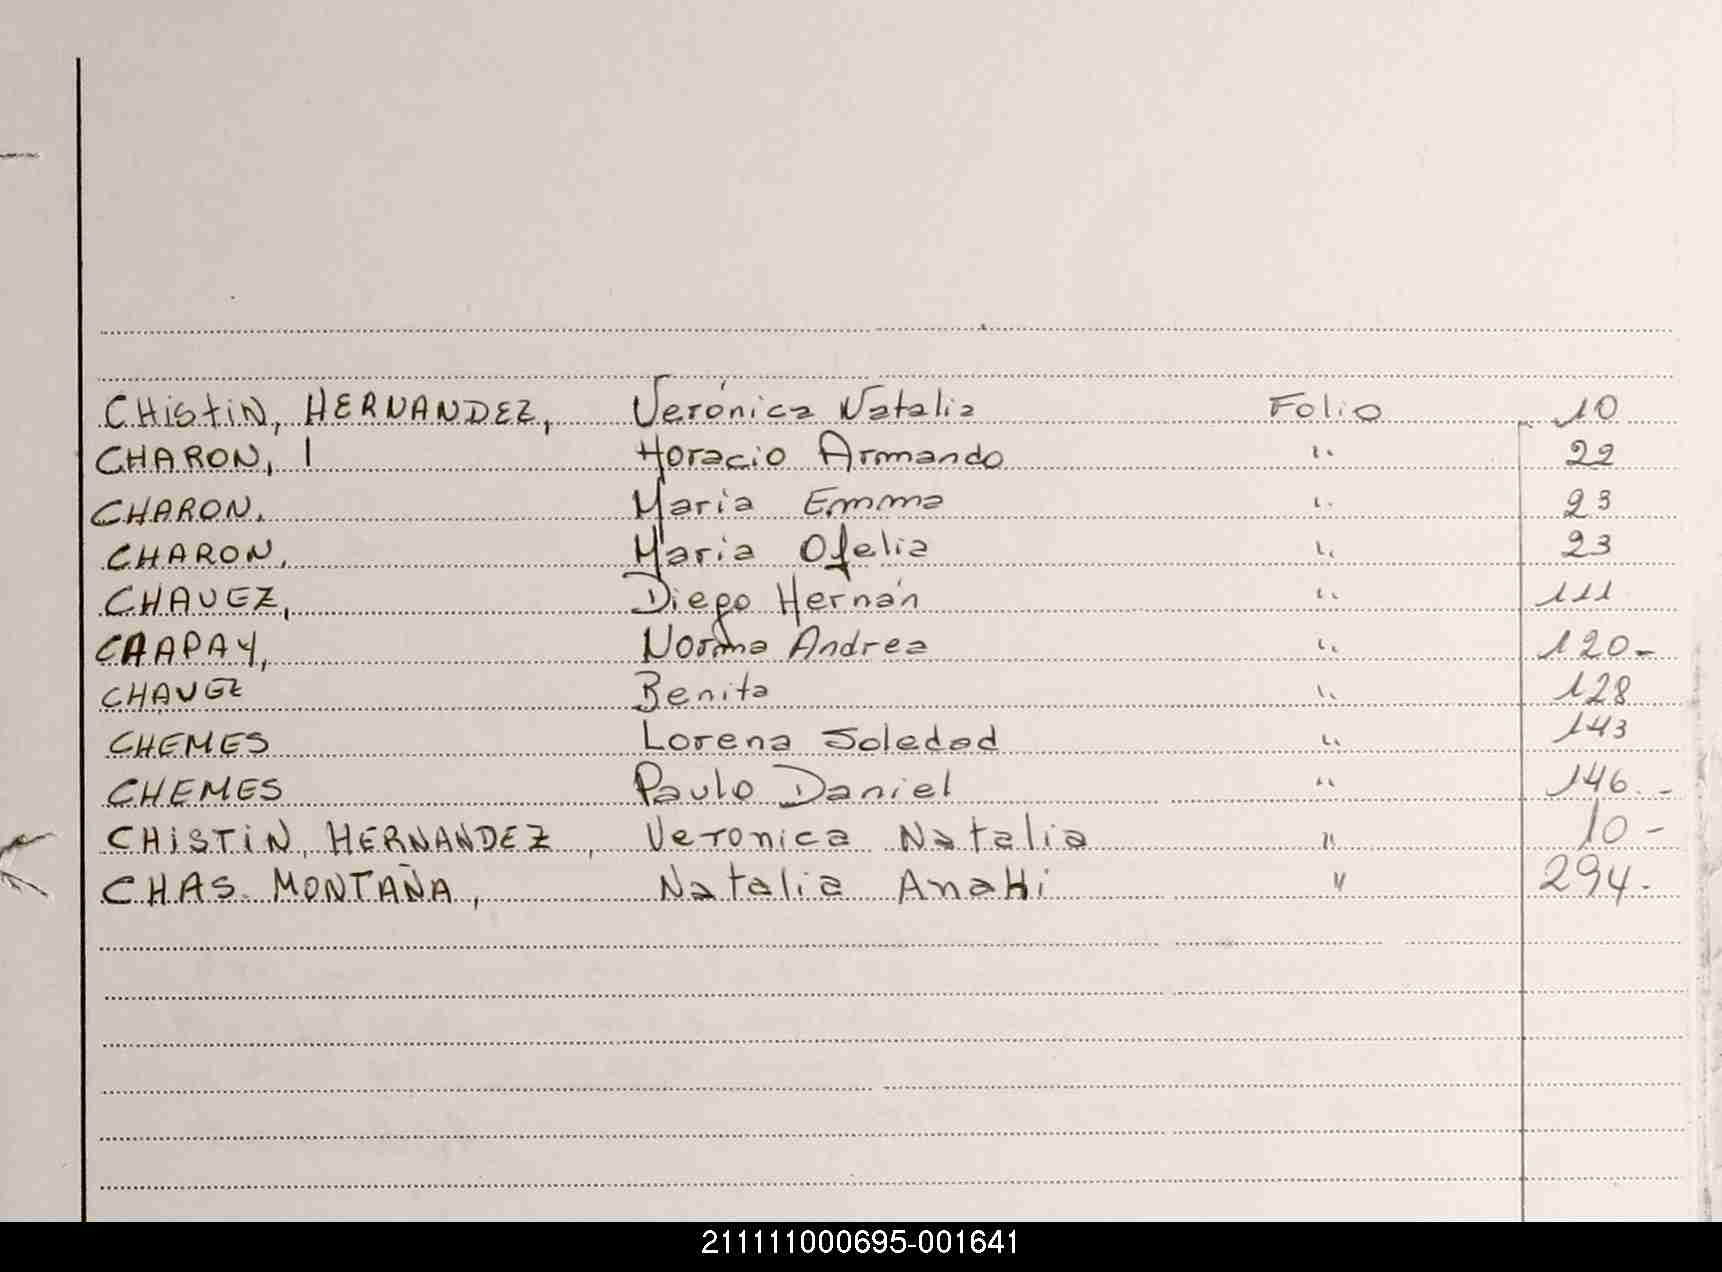 CHistiN, HERNANDEZ, Verónica Natalia Folio 10
CHARON, | Horacio Armando " 22
CHARON. Maria Emma " 23
CHARON. Maria Ofelia " 23
CHAVEZ, Diego Hernán " 111
CAAPAY, Norma Andrea " 120-
CHAVEZ Benita " 128
CHEMES Lorena Soledad " 143
CHEMES Paulo Daniel " 146.-
CHiSTiN, HERNANDEZ, Veronica Natalia " 10-
CHAS. MONTAÑA, Natalia AnaHi " 294.
211111000695-001641